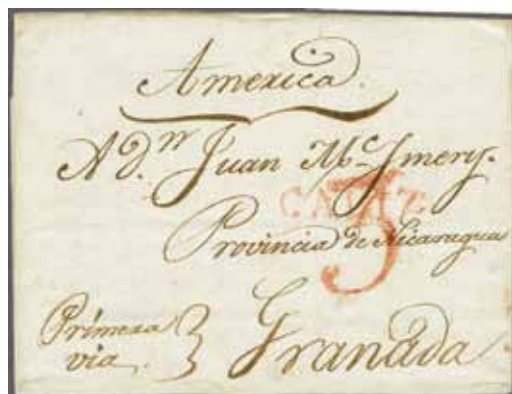 America.
A d.n Juan
CADIZ
Provincia de Nicaragua
5
Primera
via
Granada